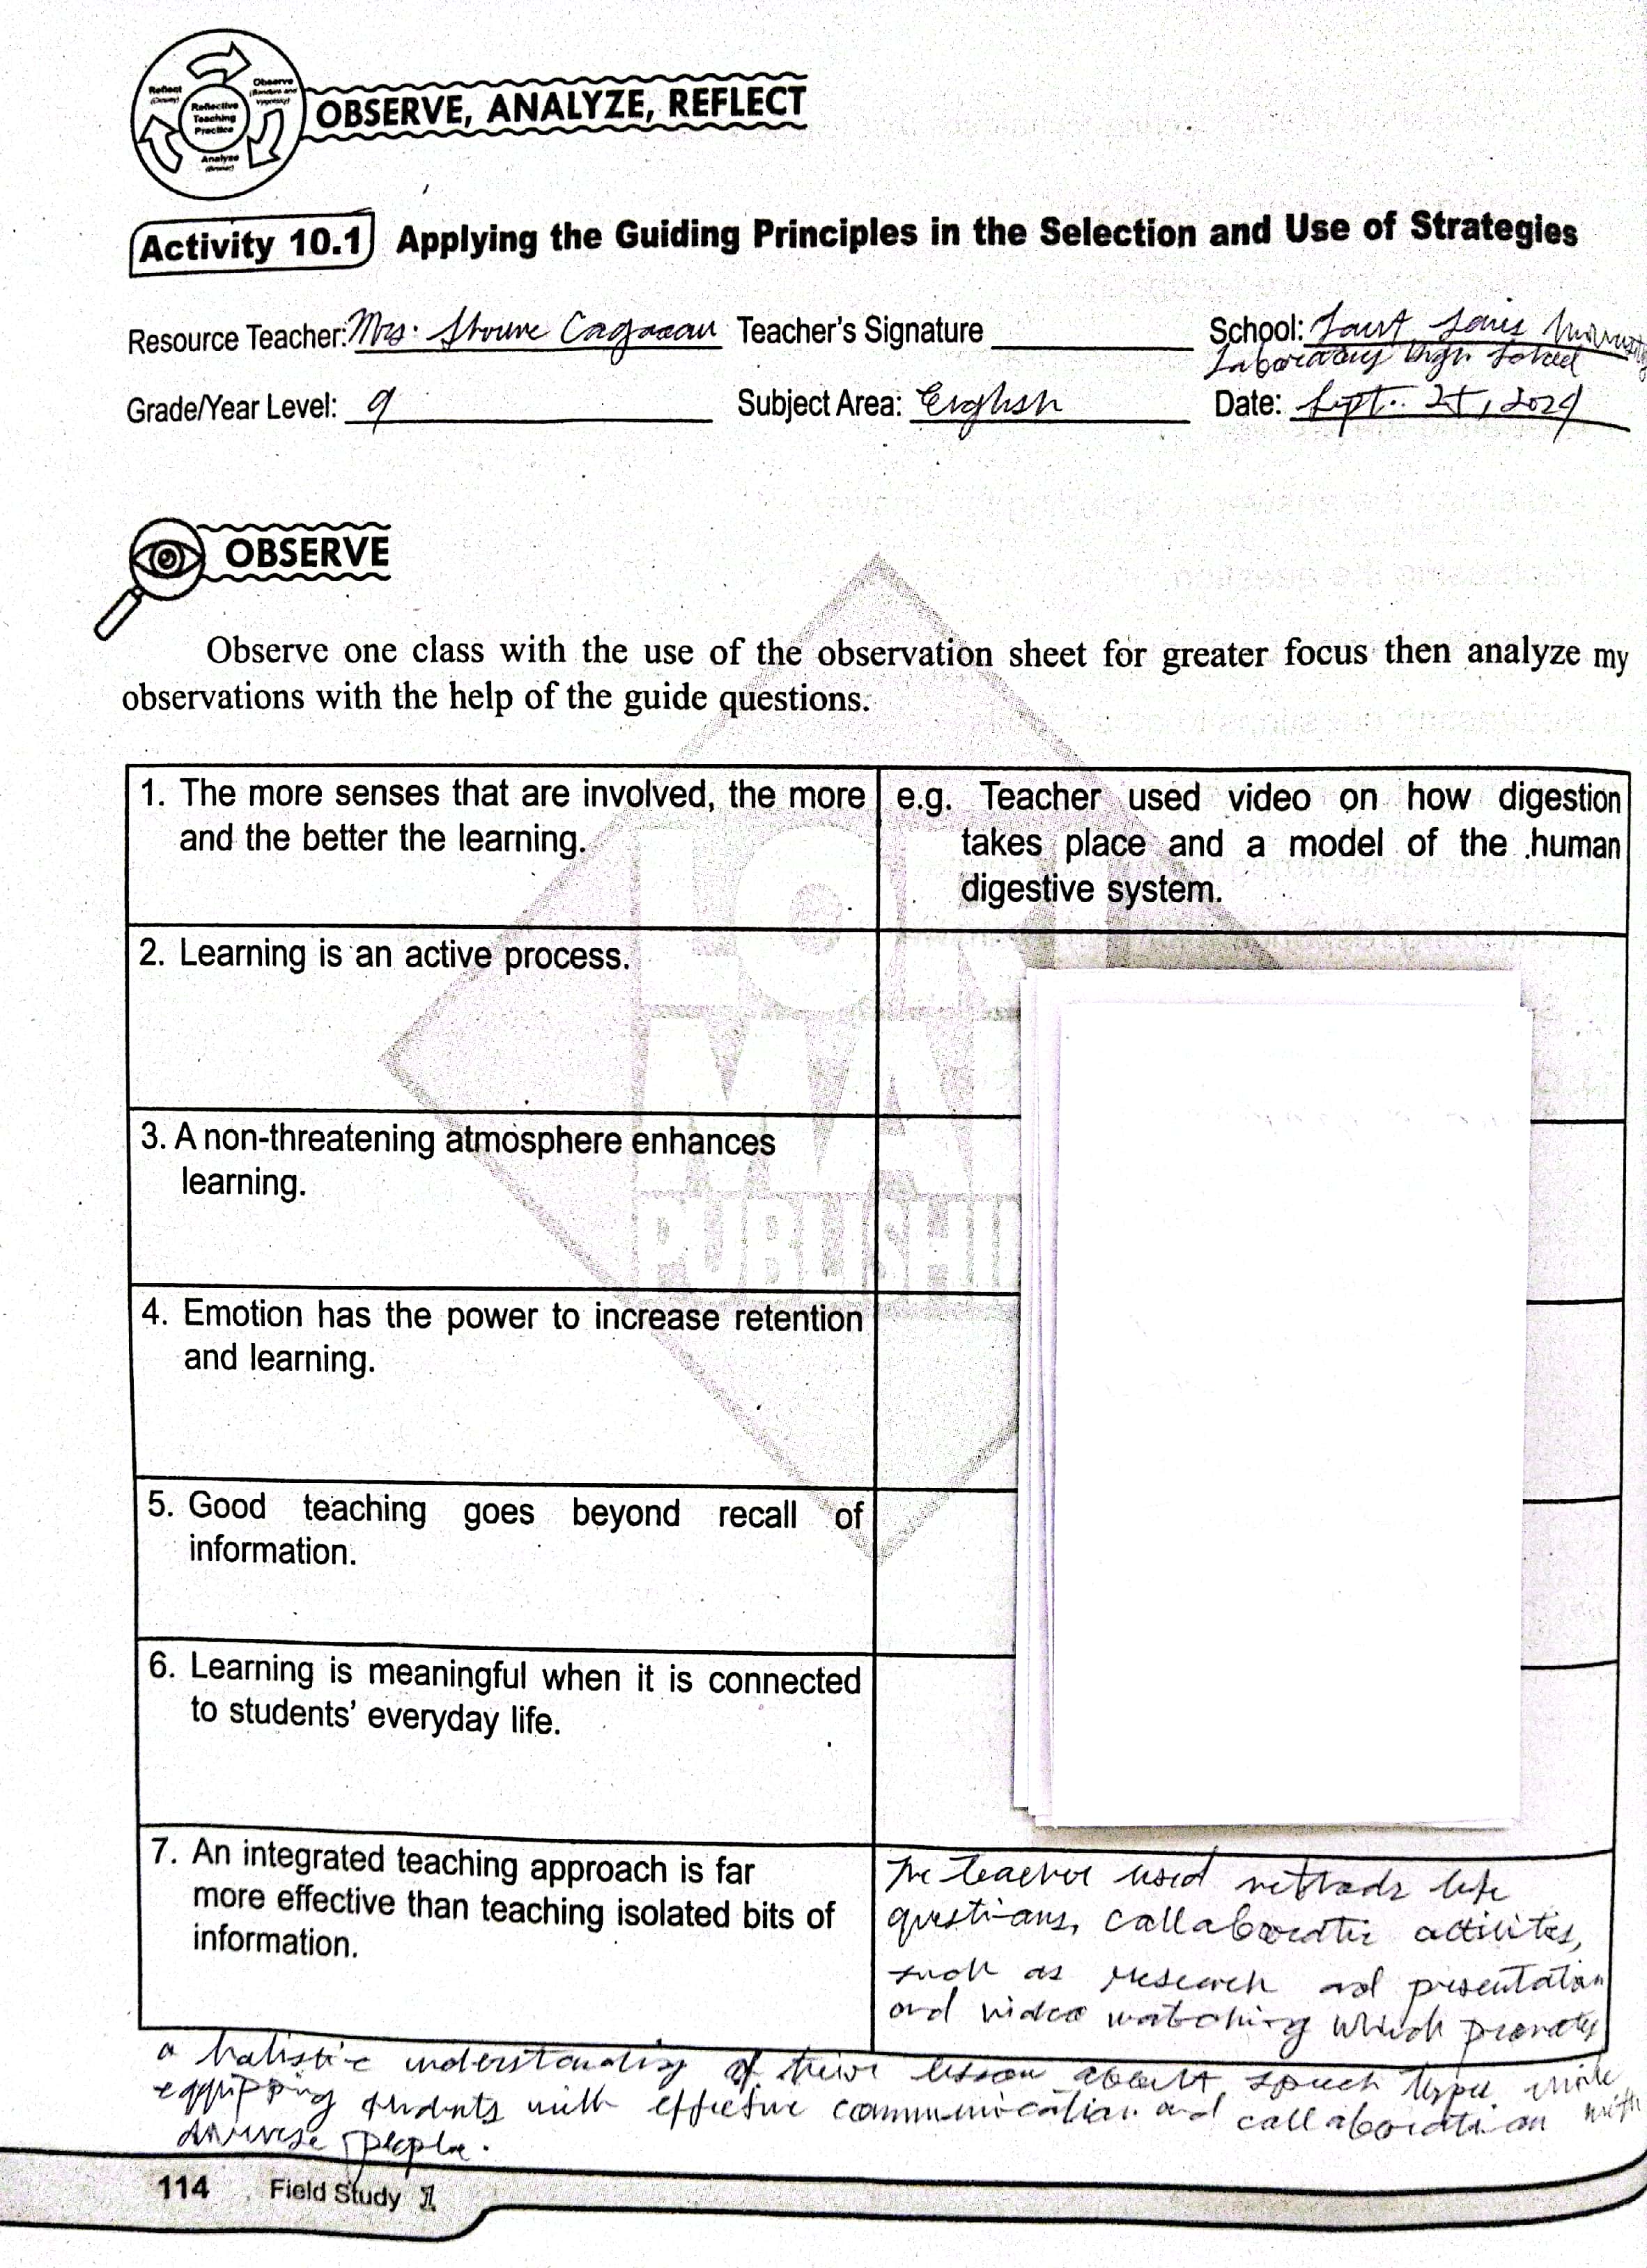 Reflect
(Dewey)
Observe
(Bandura and
Vygotsky)
Reflective
Teaching
Practice
Analyze
(Bruner)
OBSERVE, ANALYZE, REFLECT
Activity 10.1 Applying the Guiding Principles in the Selection and Use of Strategies
Resource Teacher: Mrs. Teacher's Signature School: Saint Louis University
Laboratory High School
Grade/Year Level: 9 Subject Area: English Date: Sept. 25, 2024
OBSERVE
Observe one class with the use of the observation sheet for greater focus then analyze my
observations with the help of the guide questions.
1. The more senses that are involved, the more
and the better the learning.
e.g. Teacher used video on how digestion
takes place and a model of the human
digestive system.
2. Learning is an active process.
3. A non-threatening atmosphere enhances
learning.
4. Emotion has the power to increase retention
and learning.
5. Good teaching goes beyond recall of
information.
6. Learning is meaningful when it is connected
to students' everyday life.
7. An integrated teaching approach is far
more effective than teaching isolated bits of
information.
The teacher used methods like
questions, collaborative activities,
such as research and presentation
and video watching which promotes
a holistic understanding of their lesson about speech types while
equipping students with effective communication and collaboration with
diverse people.
114 Field Study 1